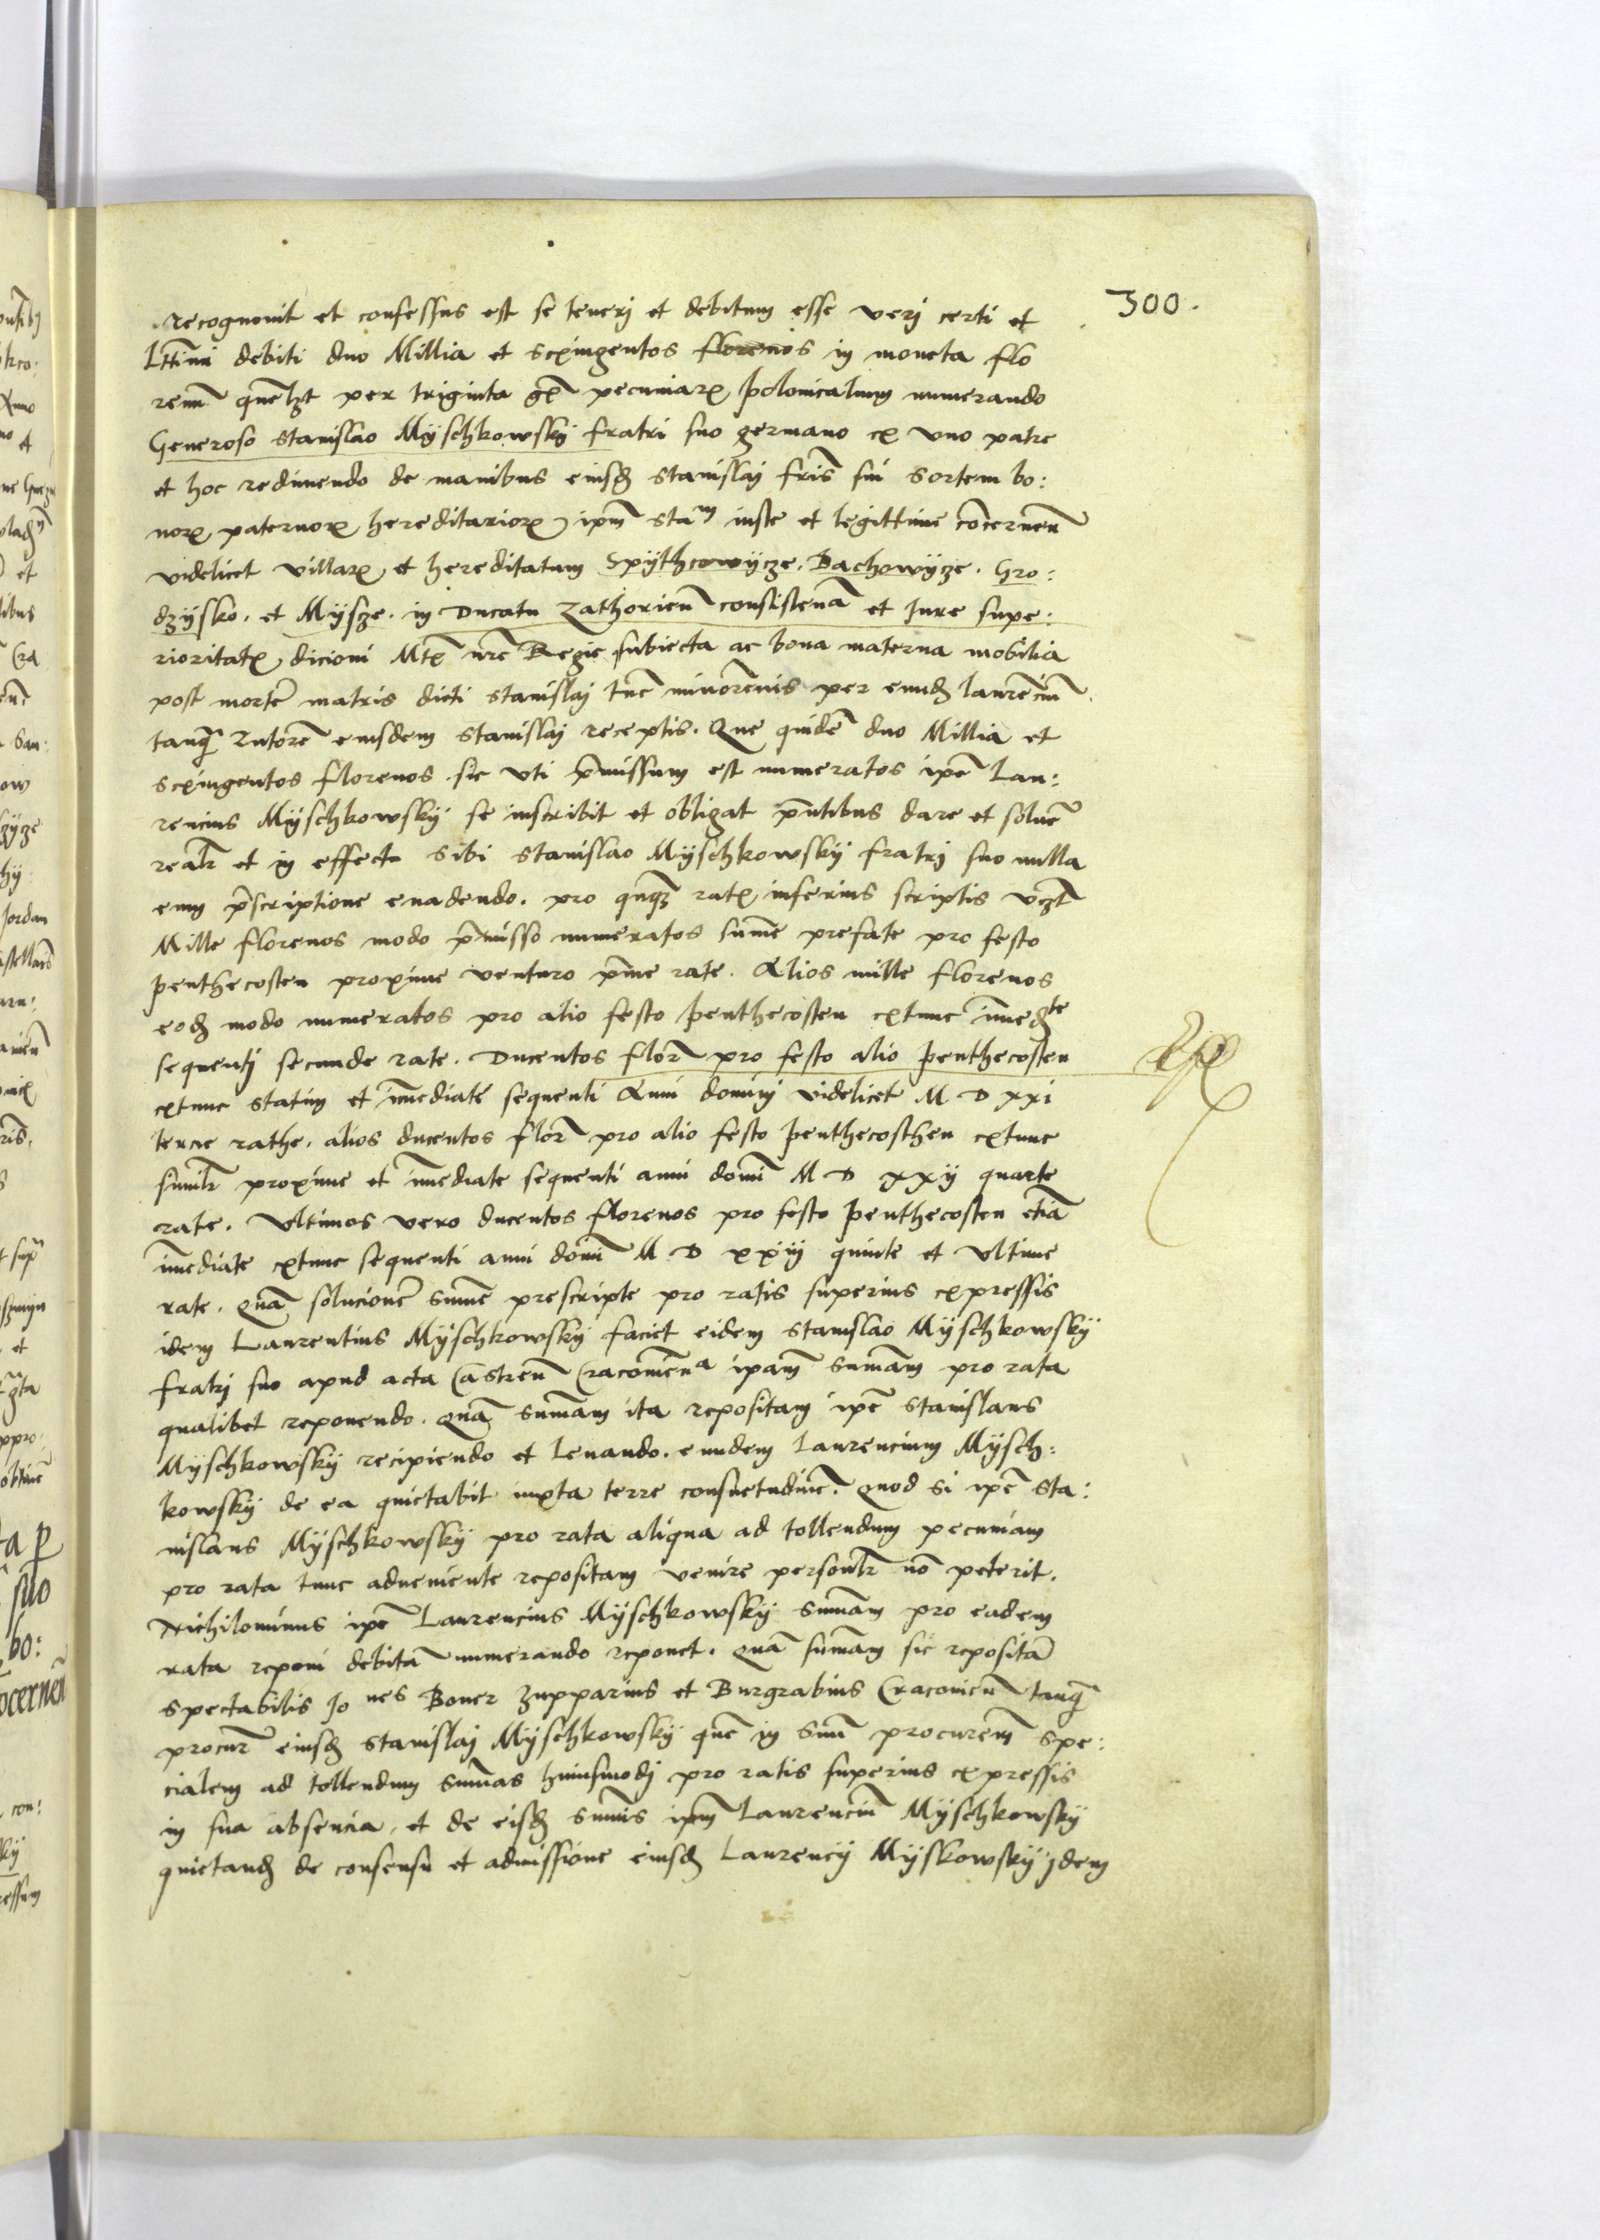 300.
recognouit et confessus est se tenerj et debitum esse verj certi et
Lttimi debiti duo Millia et sexingentos florenos in moneta flo
renum quemlzt per triginta gr pecuniarum polonicalium numerando
Generoso stanislao Myschkowskÿ fratri suo germano ex vno patre
et hoc redimendo de manibus eiusd stanislaj fris sui sortem bo:
norum paternorum hereditariorum ipm stam iuste et legittime concernen
videlicet villarum et hereditatum Spÿthcowÿcze. Bachowÿze. Gro:
dzÿsko. et Mÿscze. in Ducatu Zathorien consistena et Iure supe:
rioritatis dicioni Mtis nre Regie subiecta ac bona materna mobilia
post morte matris dicti stanislaj tuc minorennis per eund laurencium
tanq tutore eiusdem stanislaj receptis. Que quide duo Millia et
sexingentos florenos sic vti pmissum est numeratos ipe Lau:
rencius Mÿschkowskÿ se inscribit et obligat pntibus dare et soluere
realr et in effectu sibi stanislao Mÿschkowskÿ fratrj suo nulla
eum pscriptione euadendo. pro quinque ratis inferius scriptis vzt
Mille florenos modo pmisso numeratos summe prefate pro festo
penthecosten proxime venturo pme rate. Alios mille florenos
eod modo numeratos pro alio festo penthecosten extunc immedte
sequentj secunde rate. Ducentos flor pro festo alio penthecosten
extunc statim et immediate sequenti Anni dominj videlicet M D xxi
tercie rathe. alios ducentos flor pro alio festo penthecosthen extunc
similr proxime et immediate sequenti anni domi M D xxij quarte
rate. Vltimos vero ducentos florenos pro festo penthecosten etia
immediate extunc sequenti anni domi M D xxiij quinte et vltime
rate. qua solucione summe prescripte pro ratis superius expressis
idem Laurentius Mÿschkowskÿ faciet eidem stanislao Mÿschkowskÿ
fratrj suo apud acta Castren Cracouiena ipam summam pro rata
qualibet reponendo. qua summam ita repositam ipe stanislaus
Mÿschkowskÿ recipiendo et leuando. eundem Laurencium Mÿsch:
kowskÿ de ea quictabit iuxta terre consuetudine. quod si ipe sta:
nislaus Mÿschkowskÿ pro rata aliqua ad tollendum pecuniam
pro rata tunc adueniente repositam venire personlr no poterit.
Nichilominus ipe Laurencius Mÿschkowskÿ summam pro eadem
rata reponi debita numerando reponet. qua summam sic reposita
spectabilis Jo nes Boner zupparius et Burgrabius Cracouien tanq
procur eiusd stanislaj Mÿschkowskÿ que in suum procurem spe:
cialem ad tollendum summas huiusmodj pro ratis superius expressis
in sua absencia, et de eisd summis ipm Laurencium Mÿschkowskÿ
quictand de consensu et admissione eiusd Laurencij Mÿskowskÿ jdem